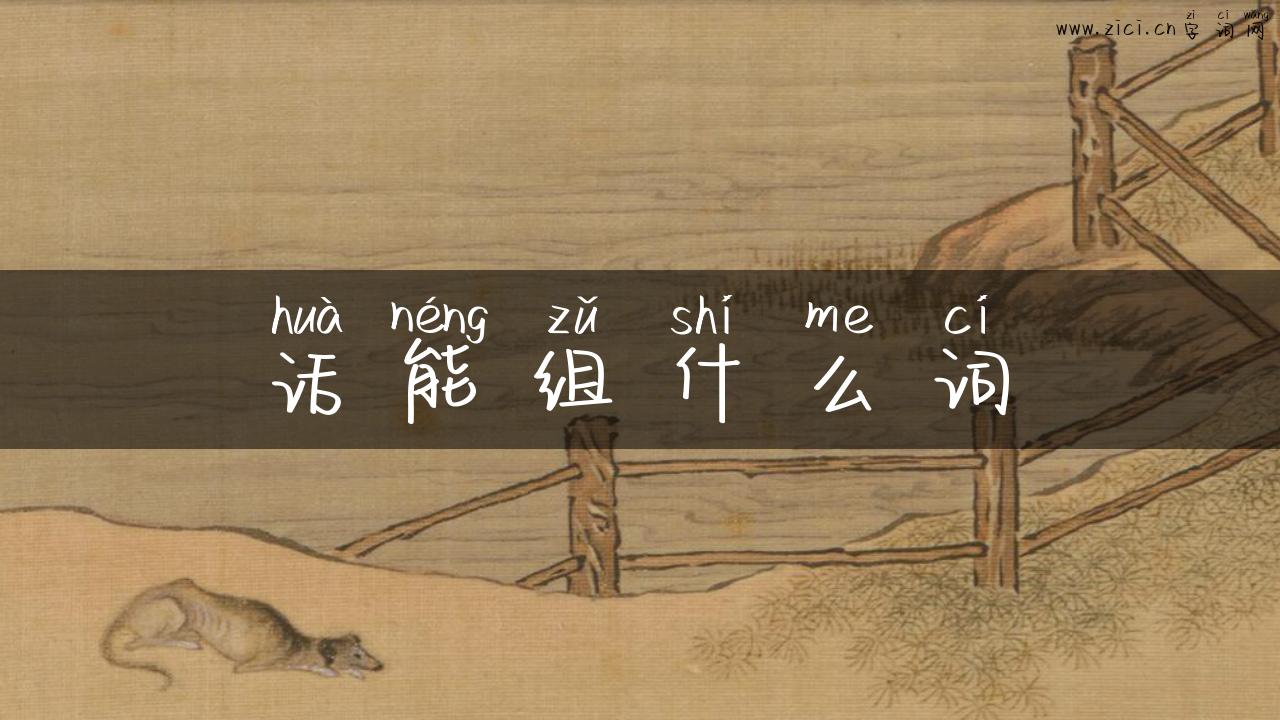 zi ci wang
www.zici.cn 字词网
huà néng zǔ shi me cí
话能组什么词